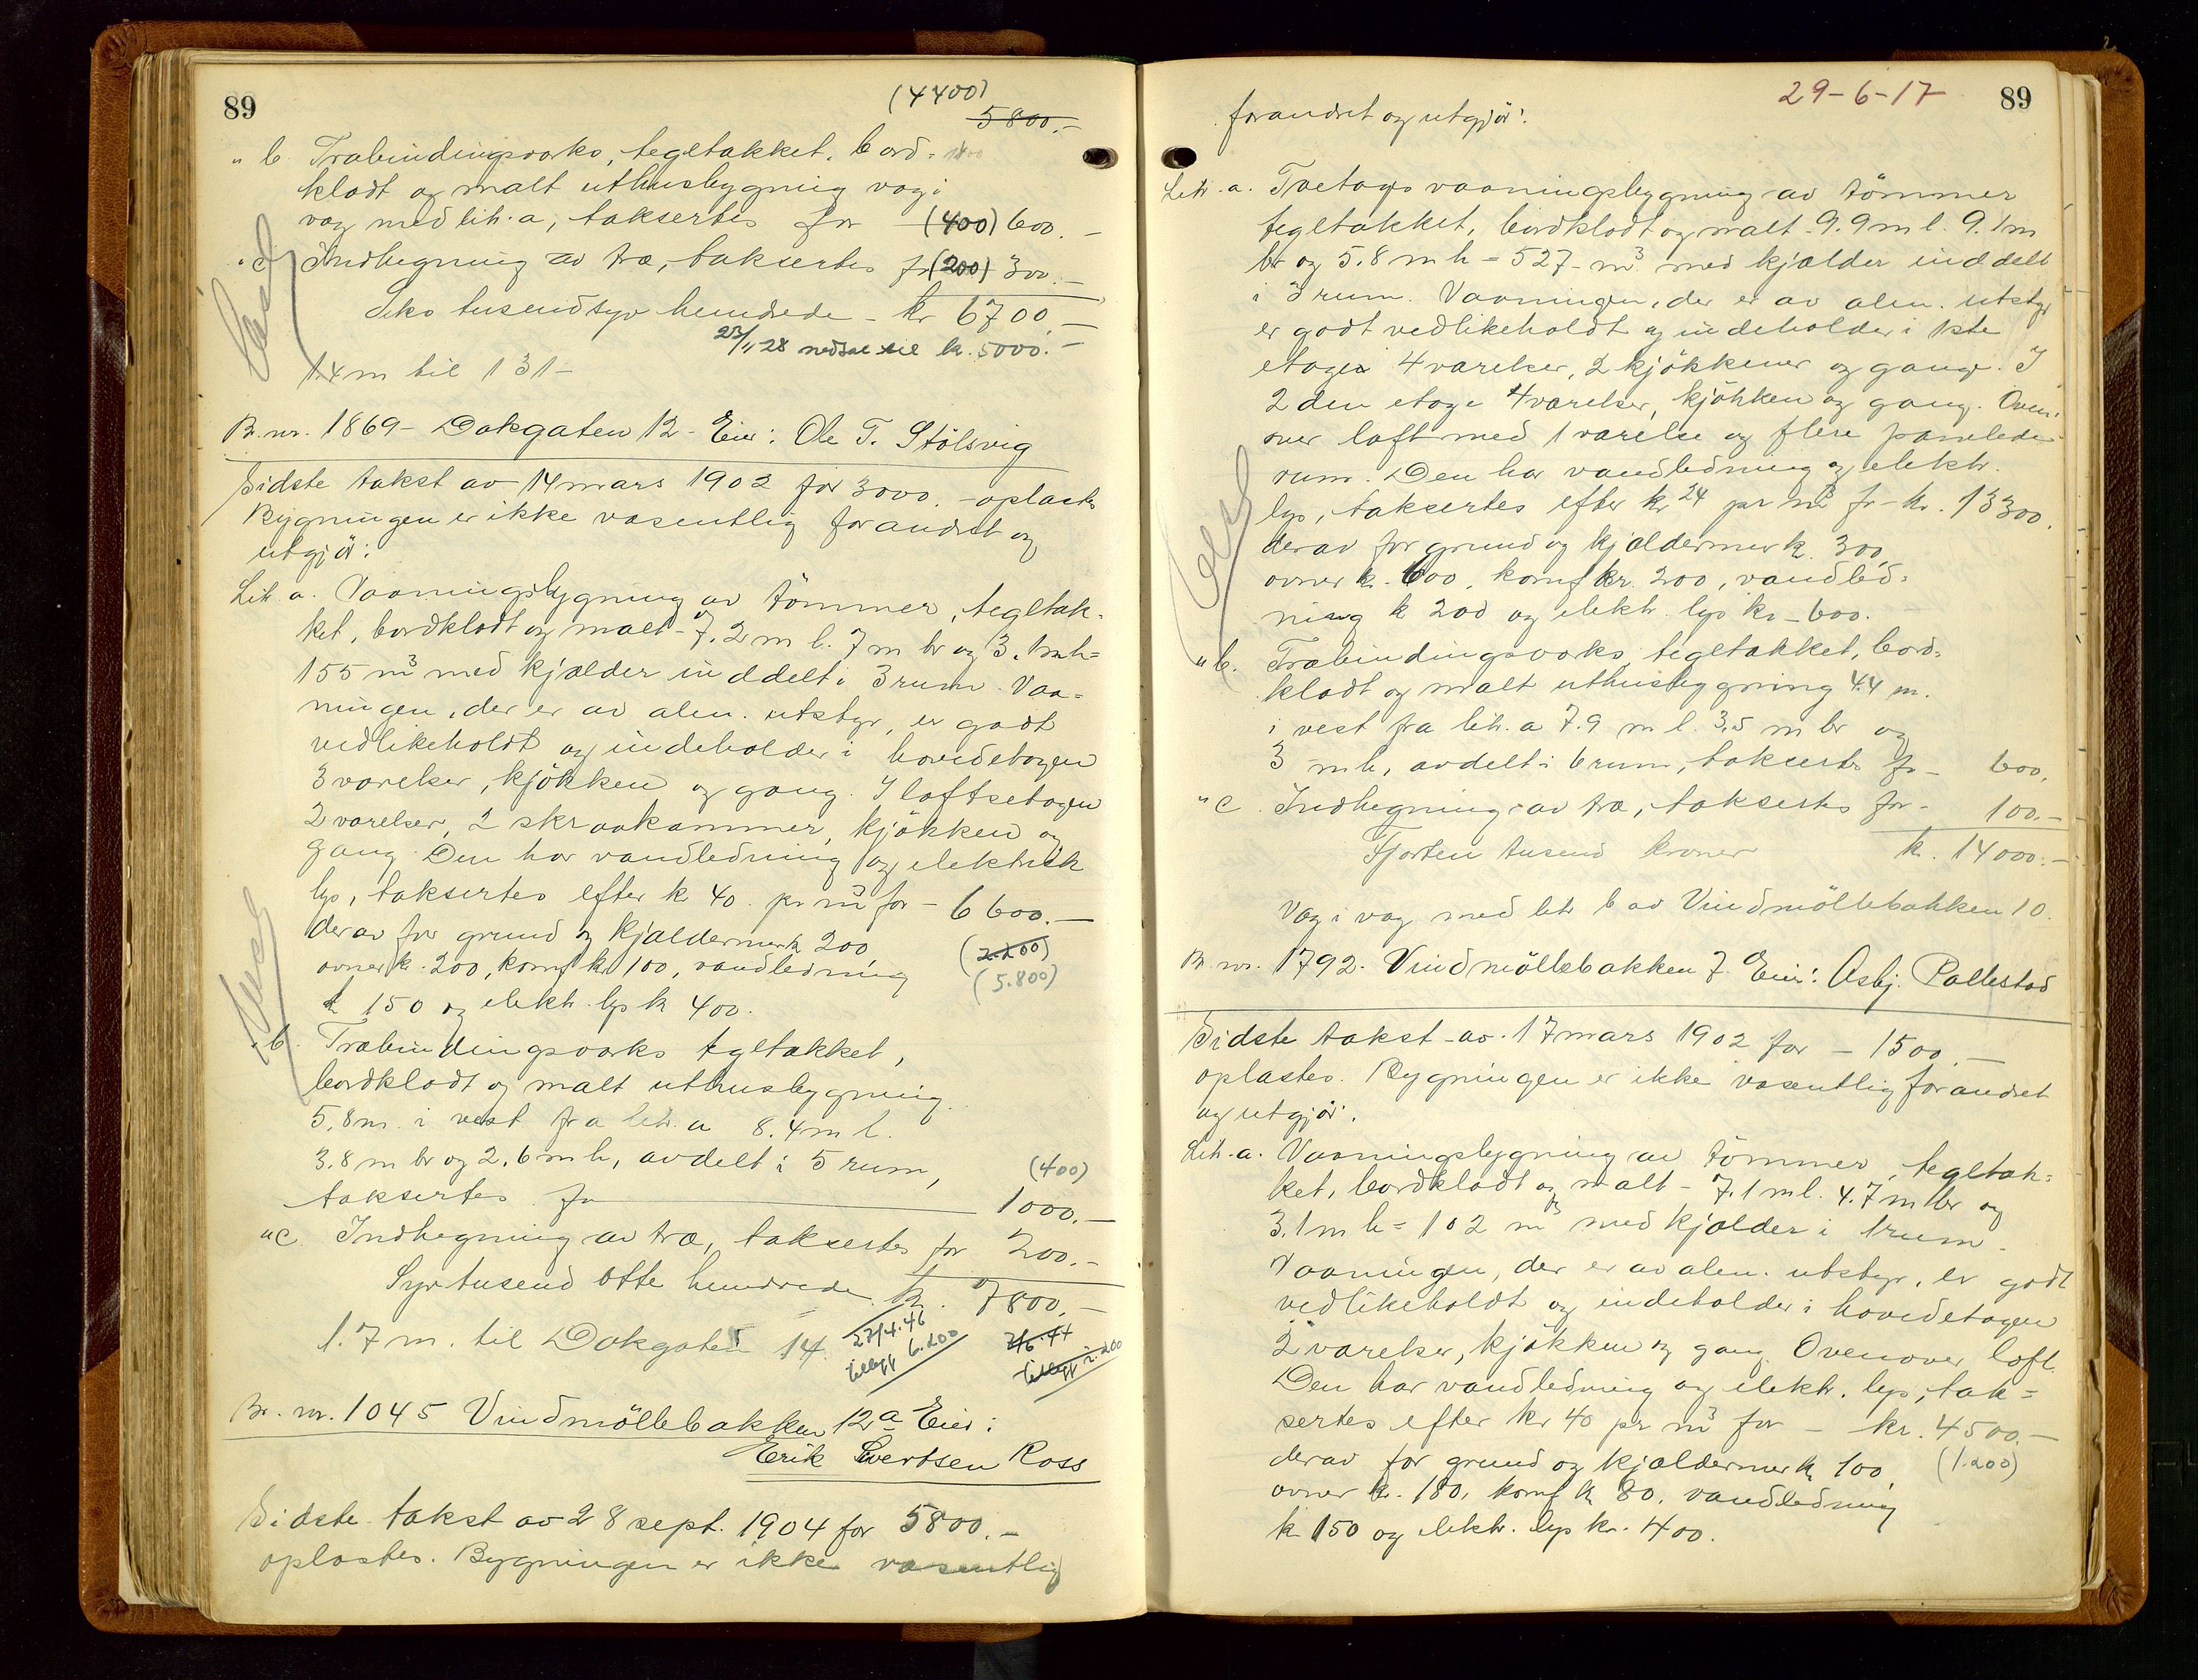 89
(4400)
5800.-
" b. Træbindingsværks, tegltækket, bord-
klædt og malt uthusbygning væg i
væg med litr. a, taksertes for (400) 600.-
" c. Indhegning av træ, taksertes for (200) 300.-
Seks tusend syv hundrede - kr 6700.-
23/11 28 nedsat til kr. 5000.-
1.4 m til 131-
Br. nr. 1869 - Dokgaten 12 - Eier: Ole T. Stölsvig
Sidste takst av 14 mars 1902 for 3000.- oplæstes
Bygningen er ikke væsentlig forandret og
utgjör:
Litr. a. Vaaningsbygning av tömmer, tegltæk-
ket, bordklædt og malt - 7.2 m l. 7 m br og 3.1 m h =
155 m³ med kjælder inddelt i 3 rum. Vaa-
ningen, der er av alm. utstyr, er godt
vedlikeholdt og indeholder i hovedetagen
3 værelser, kjökken og gang. I loftsetagen
2 værelser, 2 skraakammer, kjökken og
gang. Den har vandledning og elektrisk
lys, taksertes efter kr 40. pr m³ for - 6600.-
derav for grund og kjældermur kr 200 (2.200)
ovner kr. 200, komf kr 100, vandledning (5.800)
kr 150 og elektr. lys kr 400.
" b. Træbindingsværks tegltækket,
bordklædt og malt uthusbygning.
5.8 m. i vest fra litr. a 8.4 m l.
3.8 m br og 2.6 m h, avdelt i 5 rum, (400)
taksertes for 1000.-
" c. Indhegning av træ, taksertes for 200.-
Syv tusend otte hundrede kr. 7800.-
1.7 m. til Dokgaten 14 27/4.46 2/6.44
tillegg 6.200 tillegg 2.200
Br. nr. 1045 Vindmöllebakken 12a Eier:
Erik Sivertsen Ross
Sidste takst av 28 sept. 1904 for 5800.-
oplæstes. Bygningen er ikke væsentlig
29-6-17 89
forandret og utgjör:
Litr. a. Toetages vaaningsbygning av tömmer
tegltækket, bordklædt og malt - 9.9 m l. 9.1 m
br og 5.8 m h = 527 m³ med kjælder inddelt
i 3 rum. Vaaningen, der er av alm. utstyr
er godt vedlikeholdt og indeholder i 1ste
etage 4 værelser, 2 kjökkener og gange. I
2den etage 4 værelser, kjökken og gang. Oven-
over loft med 1 værelse og flere panelede
rum. Den har vandledning og elektr.
lys, taksertes efter kr 24 pr m³ for - kr. 13300.
derav for grund og kjældermur kr. 300,
ovner kr. 600, komf kr. 200, vandled-
ning kr 200 og elektr. lys kr - 600.
" b. Træbindingsværks, tegltækket, bord-
klædt og malt uthusbygning 4.4 m.
i vest fra litr. a 7.9 m l. 3,5 m br og
3 m h, avdelt i 6 rum, taksertes for - 600.
" c. Indhegning av træ, taksertes for - 100.-
Fjorten tusend kroner kr. 14000.-
Væg i væg med litr b av Vindmöllebakken 10.
Br nr. 1792. Vindmöllebakken 7. Eier: Asbj. Pallestad
Sidste takst av 17 mars 1902 for - 1500.-
oplæstes. Bygningen er ikke væsentlig forandret
og utgjör:
Litr. a. Vaaningsbygning av tömmer, tegltæk-
ket, bordklædt og malt - 7.1 m l. 4.7 m br og
3.1 m h = 102 m³ med kjælder i 1 rum.
Vaaningen, der er av alm. utstyr, er godt
vedlikeholdt og indeholder i hovedetagen
2 værelser, kjökken og gang. Ovenover loft.
Den har vandledning og elektr. lys, tak-
sertes efter kr 40 pr m³ for - kr. 4500.-
derav for grund og kjældermur kr 100, (1.200)
ovner kr. 180, komf kr 80, vandledning
kr 150 og elektr. lys kr. 400.